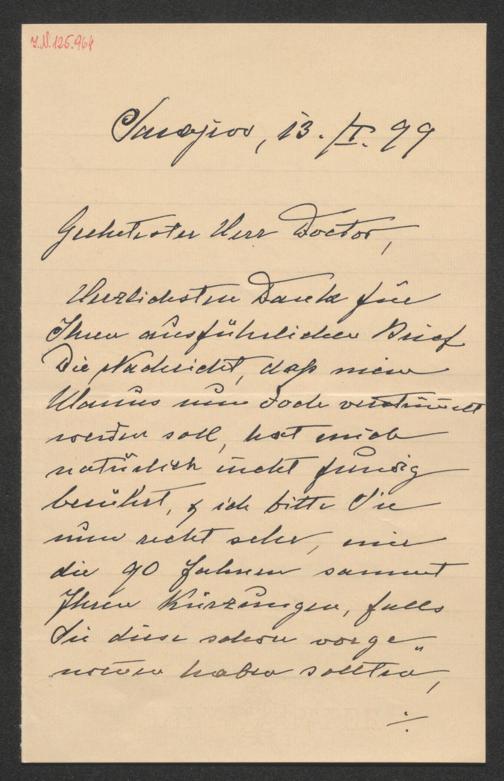 J.N. 126.964
Sarajevo, 13./I. 99
Geehrtester Herr Doctor,
Herzlichsten Dank für
Ihren ausführlichen Brief
Die Nachricht, daß mein
nun doch verstümmelt
werden soll, hat mich
natürlich nicht freudig
berührt, & ich bitte Sie
nun recht sehr, mir
die 90 Fahnen sammt
Ihren Kürzungen, falls
Sie diese schon vorge„
nommen haben sollten,
./.